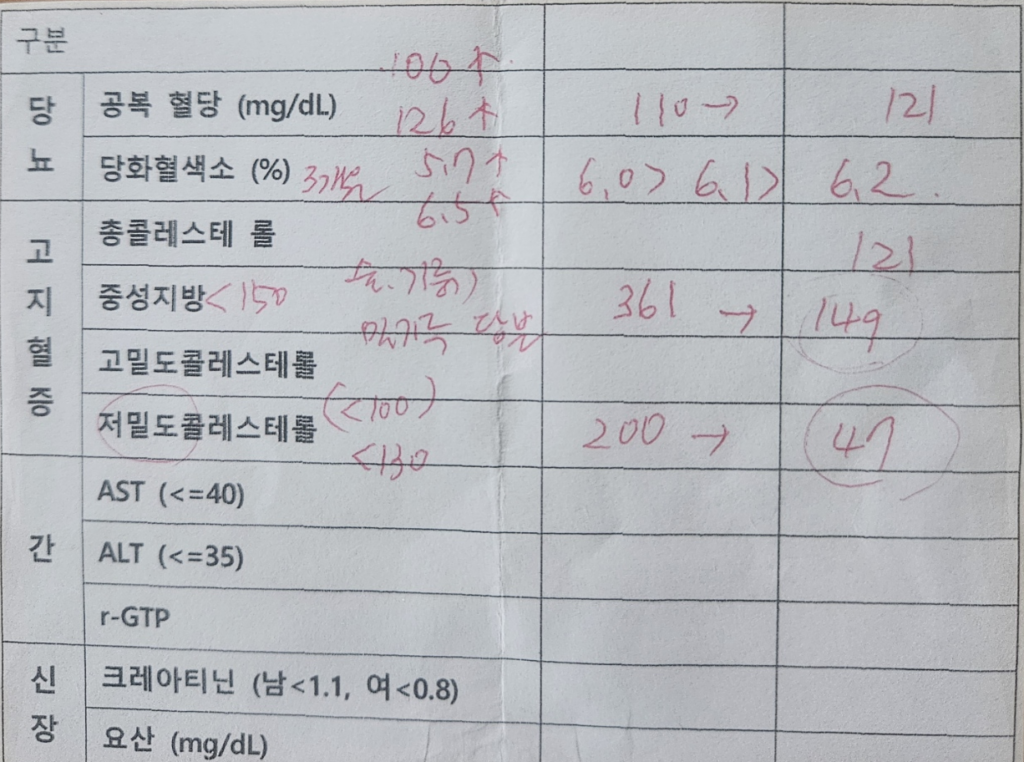 구분
100 ↑
당뇨
공복 혈당 (mg/dL) 126 ↑ 110 → 121
당화혈색소 (%) 3개월 5.7 ↑ 6.0 > 6.1 > 6.2.
6.5 ↑
고지혈증
총콜레스테 롤 121
중성지방 <150 술. 기름기 361 → 149
밀가루 당분
고밀도콜레스테롤
저밀도콜레스테롤 (<100) 200 → 47
<130
간
AST (<=40)
ALT (<=35)
r-GTP
신장
크레아티닌 (남<1.1, 여<0.8)
요산 (mg/dL)